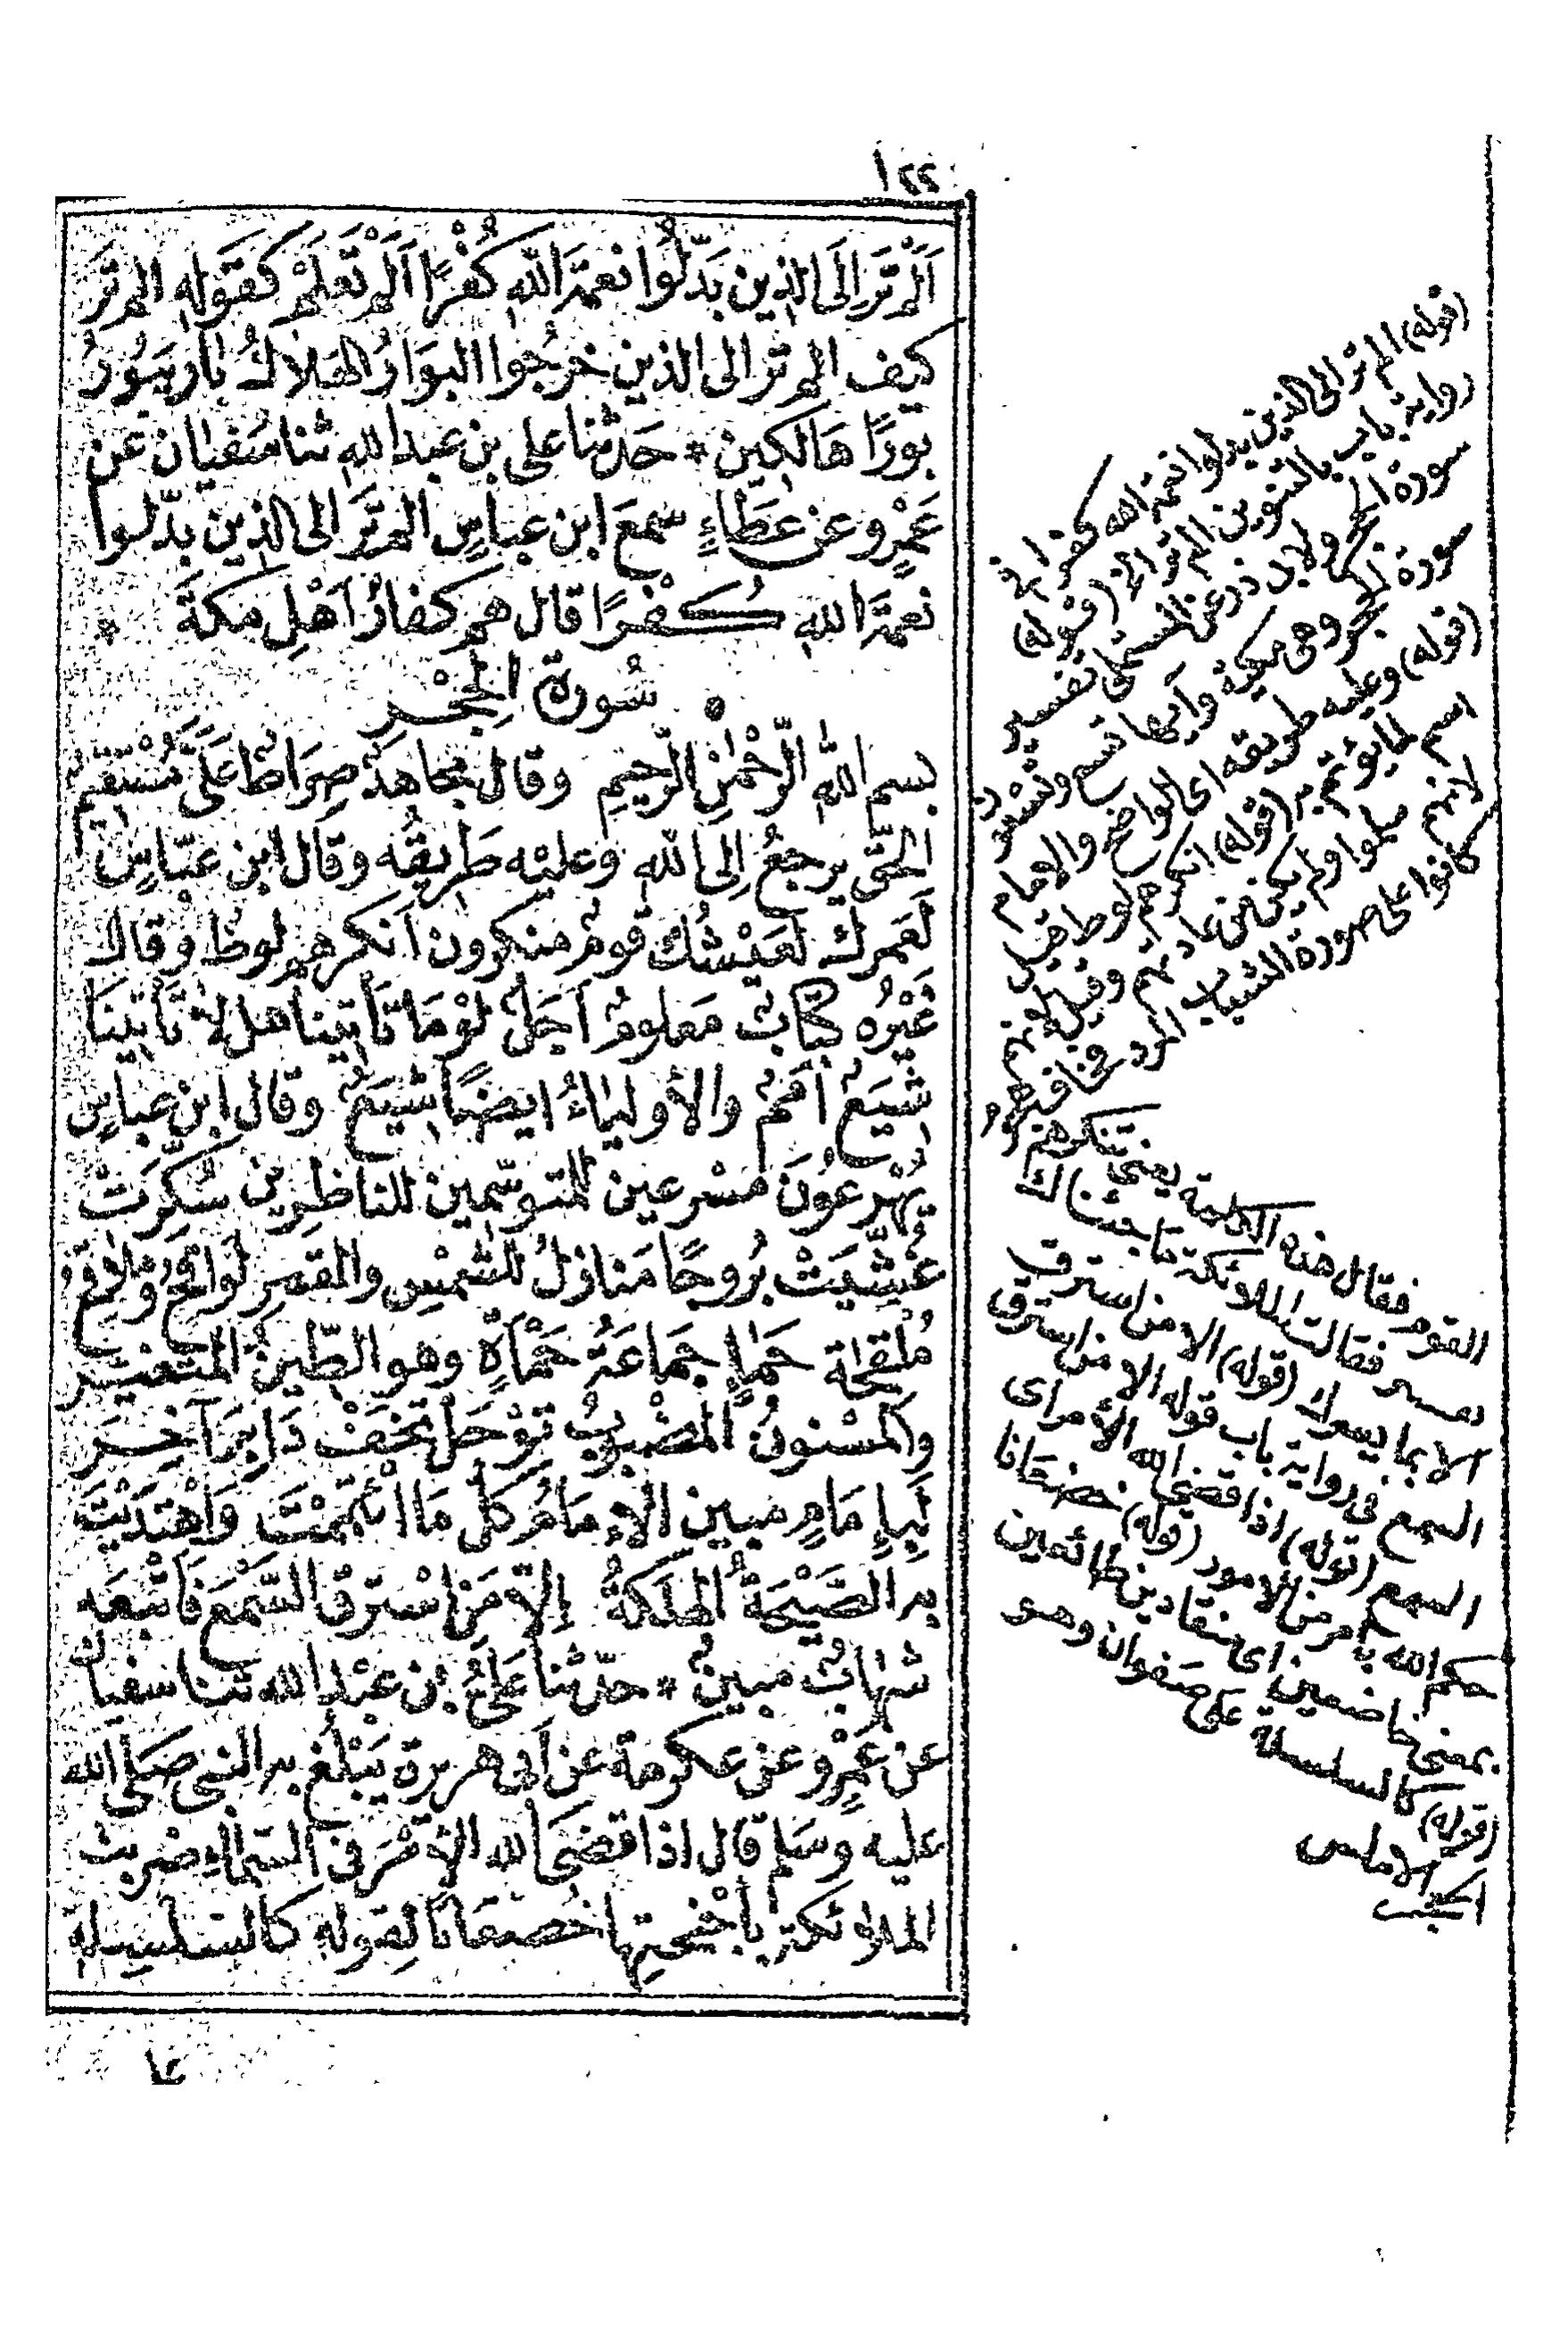 ١٢٢
اَلَمْ تَرَ اِلَى الذِين بَدَّلُوا نعمَةَ اللهِ كُفْرًا اَلَمْ تَعْلَمْ كَقَولِهِ المْ تَرَ
كيفَ المْ تَرَ الى الذين خرَجُوا البَوَارُ الهَلاكُ بارَ يَبُورُ
بُورًا هَالِكِين * حَدثنا على بن عبد اللهِ ثنا سُفيان عَن
عَمْرٍو عن عَطَاءٍ سمعَ ابن عباسٍ الم تَرَ الى الذين بدّلوا
نعمَةَ اللهِ كُفْرًا قال هم كفارُ اَهْلِ مَكةَ *
سُورة الحِجْرِ
بسم اللهِ الرّحْمٰنِ الرّحيمِ وقال مجاهدٌ صِرَاطٌ عَلَىَّ مُسْتقيمٌ
الحَقّ يرجعُ اِلى اللهِ وعليْه طَرِيقُه وقال ابن عبّاسٍ
لَعَمرك لَعَيْشُكَ قومٌ منكرون اَنكرهم لوطٌ وقال
غَيْرُه كِتَابٌ مَعلومٌ اَجَلٌ لوْمَا تَأتينا هلّا تأتينَا
شِيَعٌ اُمَمٌ والأولياءُ ايضًا شِيَعٌ وقال ابن عباسٍ
يُهْرعُونَ مسْرعين للمتوسّمِين للناظِرِين سُكِّرَتْ
غُشِّيَتْ بُروجًا مَنازلُ للشمْسِ والقمرِ لَوَاقِحَ مَلاقِحَ
مُلْقَحَة حَمَاٍ جَمَاعَةُ حَمْأَةٍ وهو الطّينُ المتغيّر
والمسْنونُ المَصْبوبُ تَوْجَلْ تَخَفْ دَابِرَ آخِرَ
لَبِإمَامٍ مبين الإمَامُ كلُّ مَا ائْتَمَمْتَ وَاهْتَدَيْتَ
به الصَّيْحَةُ الهَلَكَةُ اِلّا مَن اسْتَرَقَ السَّمْعَ فَاَتْبَعَه
شهَابٌ مبينٌ * حدّثنا عَلىُّ بن عبْد الله ثنا سفيان
عن عَمْرٍو عن عكرمة عن اَبى هريرة يَبْلُغ به النبى صَلى الله
عليه وسَلم قال اذا قضَى الله الأمْرَ فى السّماءِ ضَربت
الملائكة باَجْنِحتِها خُضعَانًا لِقولهِ كالسّلسِلةِ
(قوله) الم تر الى الذين بدلوا نعمة الله كفرا فى
رواية باب بالتنوين الم تر الخ (قوله)
سورة الحجر ولابى ذر عن المستملى تفسير
سورة الحجر وهى مكية وآيها تسع وتسعون
(قوله) وعليه طريقه اى الواضح والامام
اسم لما يؤتم به (قوله) انكرهم لوط قيل
لانهم سلموا ولم يكن من عادتهم وقيل لانهم
كانوا على صورة الشباب المرد فخاف هجوم
القوم فقال هذه الكلمة يعنى تنكرهم
فقالت الملائكة ما جئناك
الا بما يسرك (قوله) الا من استرق
السمع فى رواية باب قوله الا من استرق
السمع (قوله) اذا قضى الله الأمر اى
حكم الله بامر من الامور (قوله) خضعانا
بمعنى خاضعين اى منقادين طائعين
(قوله) كالسلسلة على صفوان وهو
الاملس